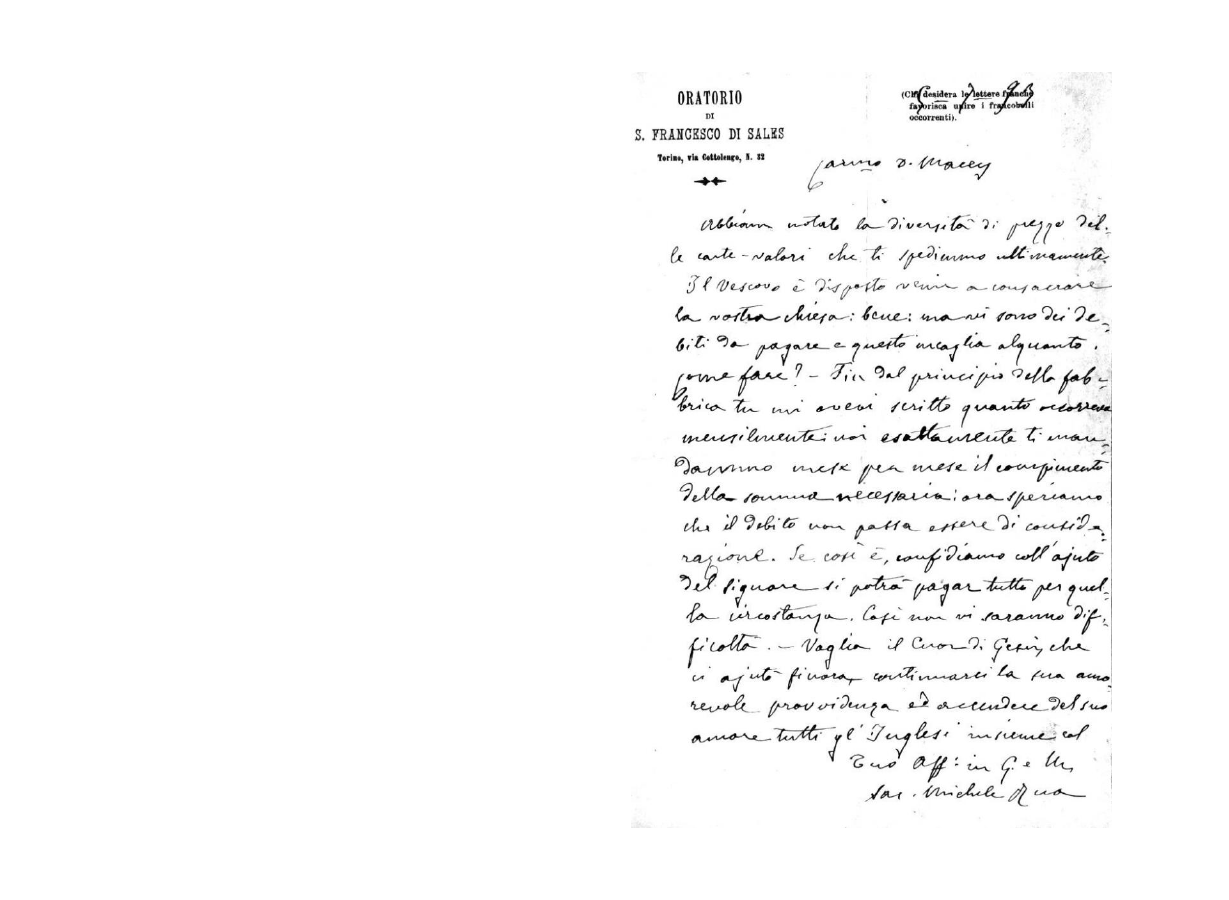 ORATORIO
DI
S. FRANCESCO DI SALES
Torino, via Cottolengo, N. 32
(Chi desidera le lettere franche
favorisca unire i francobolli
occorrenti).
Car.mo D. Macey
Abbiam notato la diversità di prezzo del-
le carte-valori che ti spedimmo ultimamente.
Il Vescovo è disposto venir a consacrare
la vostra chiesa: bene: ma vi sono dei de-
biti da pagare e questo incaglia alquanto.
Come fare? - Fin dal principio della fab-
brica tu mi avevi scritto quanto occorreva
mensilmente: noi esattamente ti man-
dammo mese per mese il compimento
della somma necessaria: ora speriamo
che il debito non possa essere di conside-
razione. Se così è, confidiamo coll'ajuto
del Signore si potrà pagar tutto per quel-
la circostanza. Così non vi saranno dif-
ficoltà. - Voglia il Cuor di Gesù, che
ci ajutò finora, continuarci la sua amo-
revole provvidenza ed accendere del suo
amore tutti gl'Inglesi insieme col
Tuo Aff: in G. e M.
Sac. Michele Rua